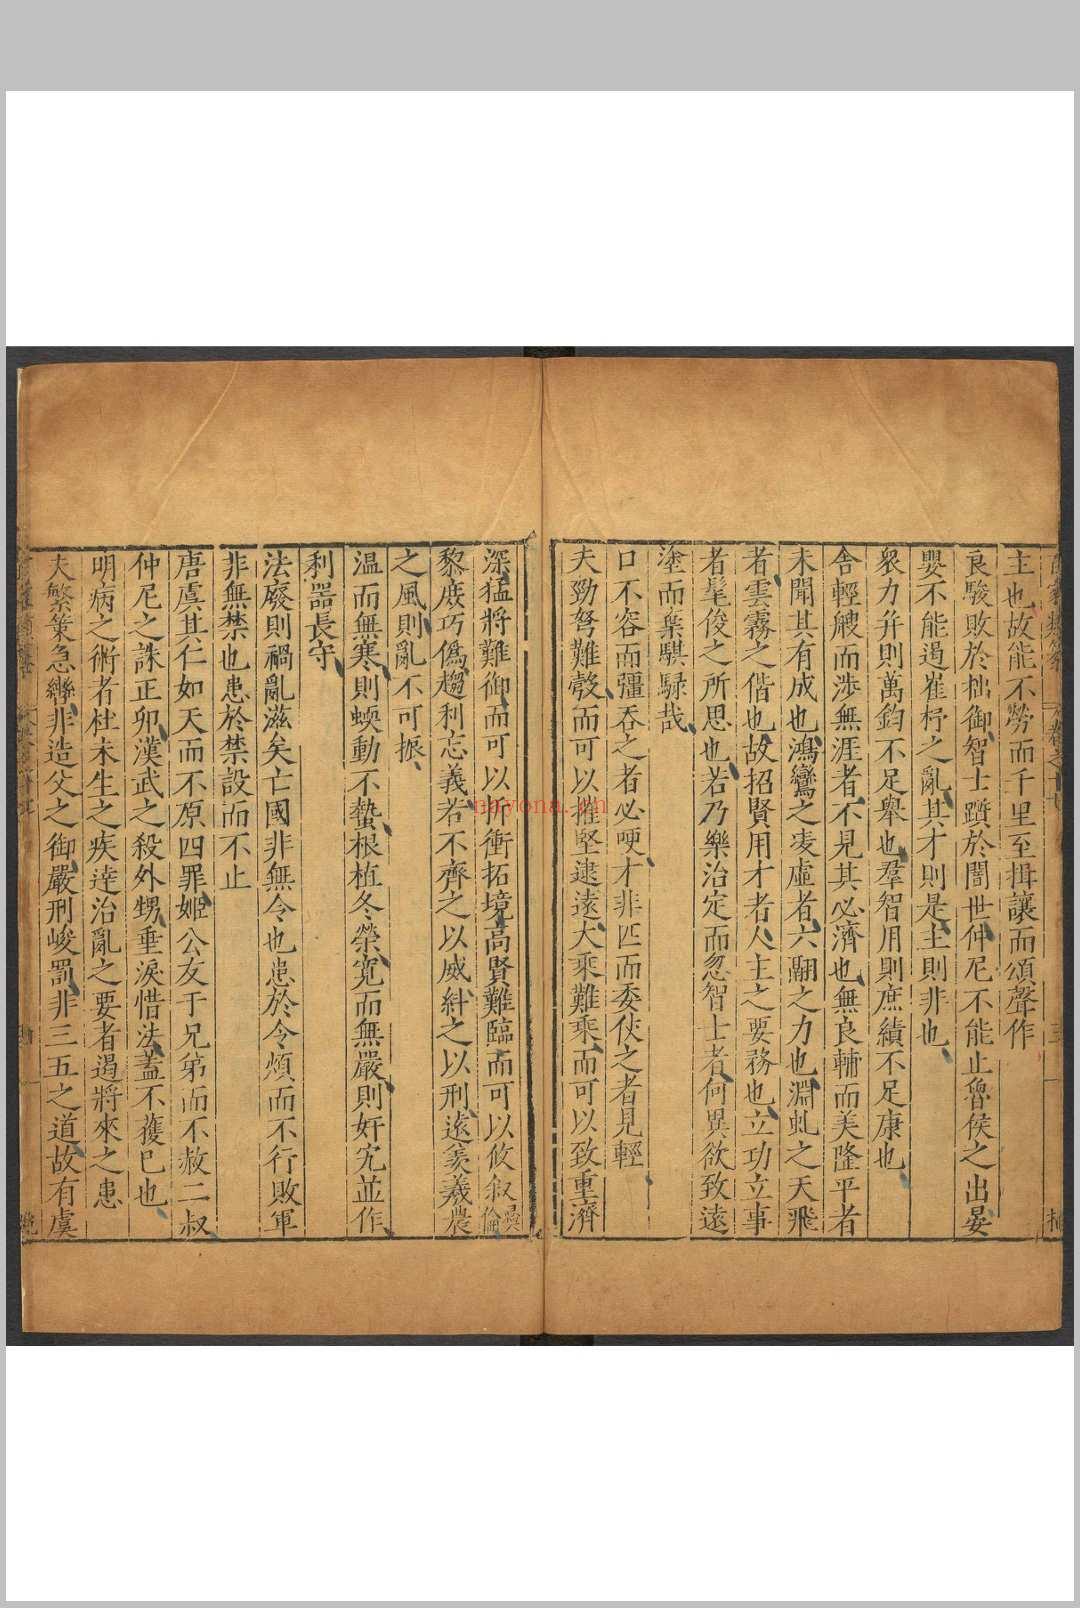 主也故能不勞而千里至揖讓而頌聲作
良駿敗於拙御智士躓於闇世仲尼不能止魯侯之出晏
嬰不能遏崔杼之亂其才則是主則非也
衆力并則萬鈞不足舉也羣智用則庶績不足康也
舍輕艘而涉無涯者不見其必濟也無良輔而羙隆平者
未聞其有成也鴻鸞之凌虛者六翮之力也淵虬之天飛
者雲霧之偕也故招賢用才者人主之要務也立功立事
者髦俊之所思也若乃樂治定而忽智士者何異欲致遠
塗而棄騏騄哉
口不容而彊吞之者必哽才非匹而委仗之者見輕
夫勁弩難彀而可以摧堅逮遠大乘難乘而可以致重濟
深猛將難御而可以折衝拓境高賢難臨而可以攸叙彝倫
黎庶巧偽趨利忘義若不齊之以威糾之以刑遠羨羲農
之風則亂不可振
温而無寒則蝡動不蟄根植冬榮寬而無嚴則奸宄並作
利器長守
法廢則禍亂滋矣亡國非無令也患於令煩而不行敗軍
非無禁也患於禁設而不止
唐虞其仁如天而不原四罪姬公友于兄弟而不赦二叔
仲尼之誅正卯漢武之殺外甥垂淚惜法蓋不獲已也
明病之術者杜未生之疾達治亂之要者遏將來之患
夫繁策急轡非造父之御嚴刑峻罰非三五之道故有虞
nayona.cn